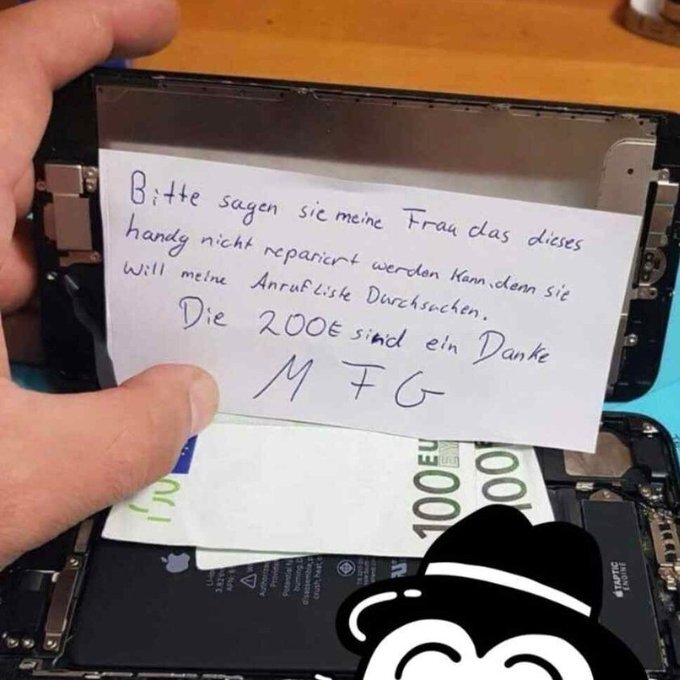 Bitte sagen sie meine Frau das dieses
handy nicht repariert werden kann, denn sie
will meine Anrufliste Durchsuchen.
Die 200€ sind ein Danke
M F G
100 EU
100
TAPTIC
ENGINE